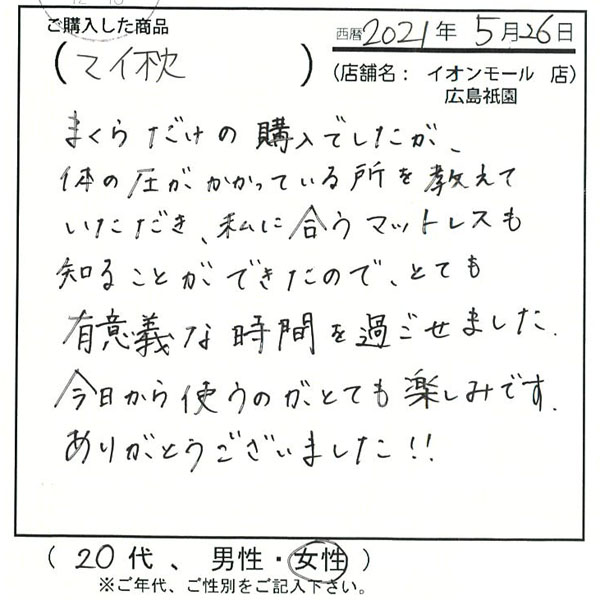 ご購入した商品
西暦2021年5月26日
(マイ枕)
(店舗名: イオンモール 店)
広島祇園
まくらだけの購入でしたが、
体の圧がかかっている所を教えて
いただき、私に合うマットレスも
知ることができたので、とても
有意義な時間を過ごせました.
今日から使うのがとても楽しみです.
ありがとうございました!!
(20代、男性・女性)
※ご年代、ご性別をご記入下さい。